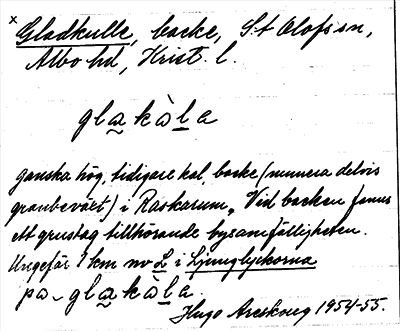 x
Gladkulle, backe, S:t Olofs sn,
Albo hd, Krist. l.
gla̰kàḻa
Ganska hög, tidigare kal, backe (numera delvis
granbeväxt) i Raskarum. Vid backen finns
ett grustag tillhörande bysamfälligheten.
Ungefär 1 km nv L i Ljunglyckorna
pa- gla̰kàḻa.
Hugo Areskoug 1954-55.